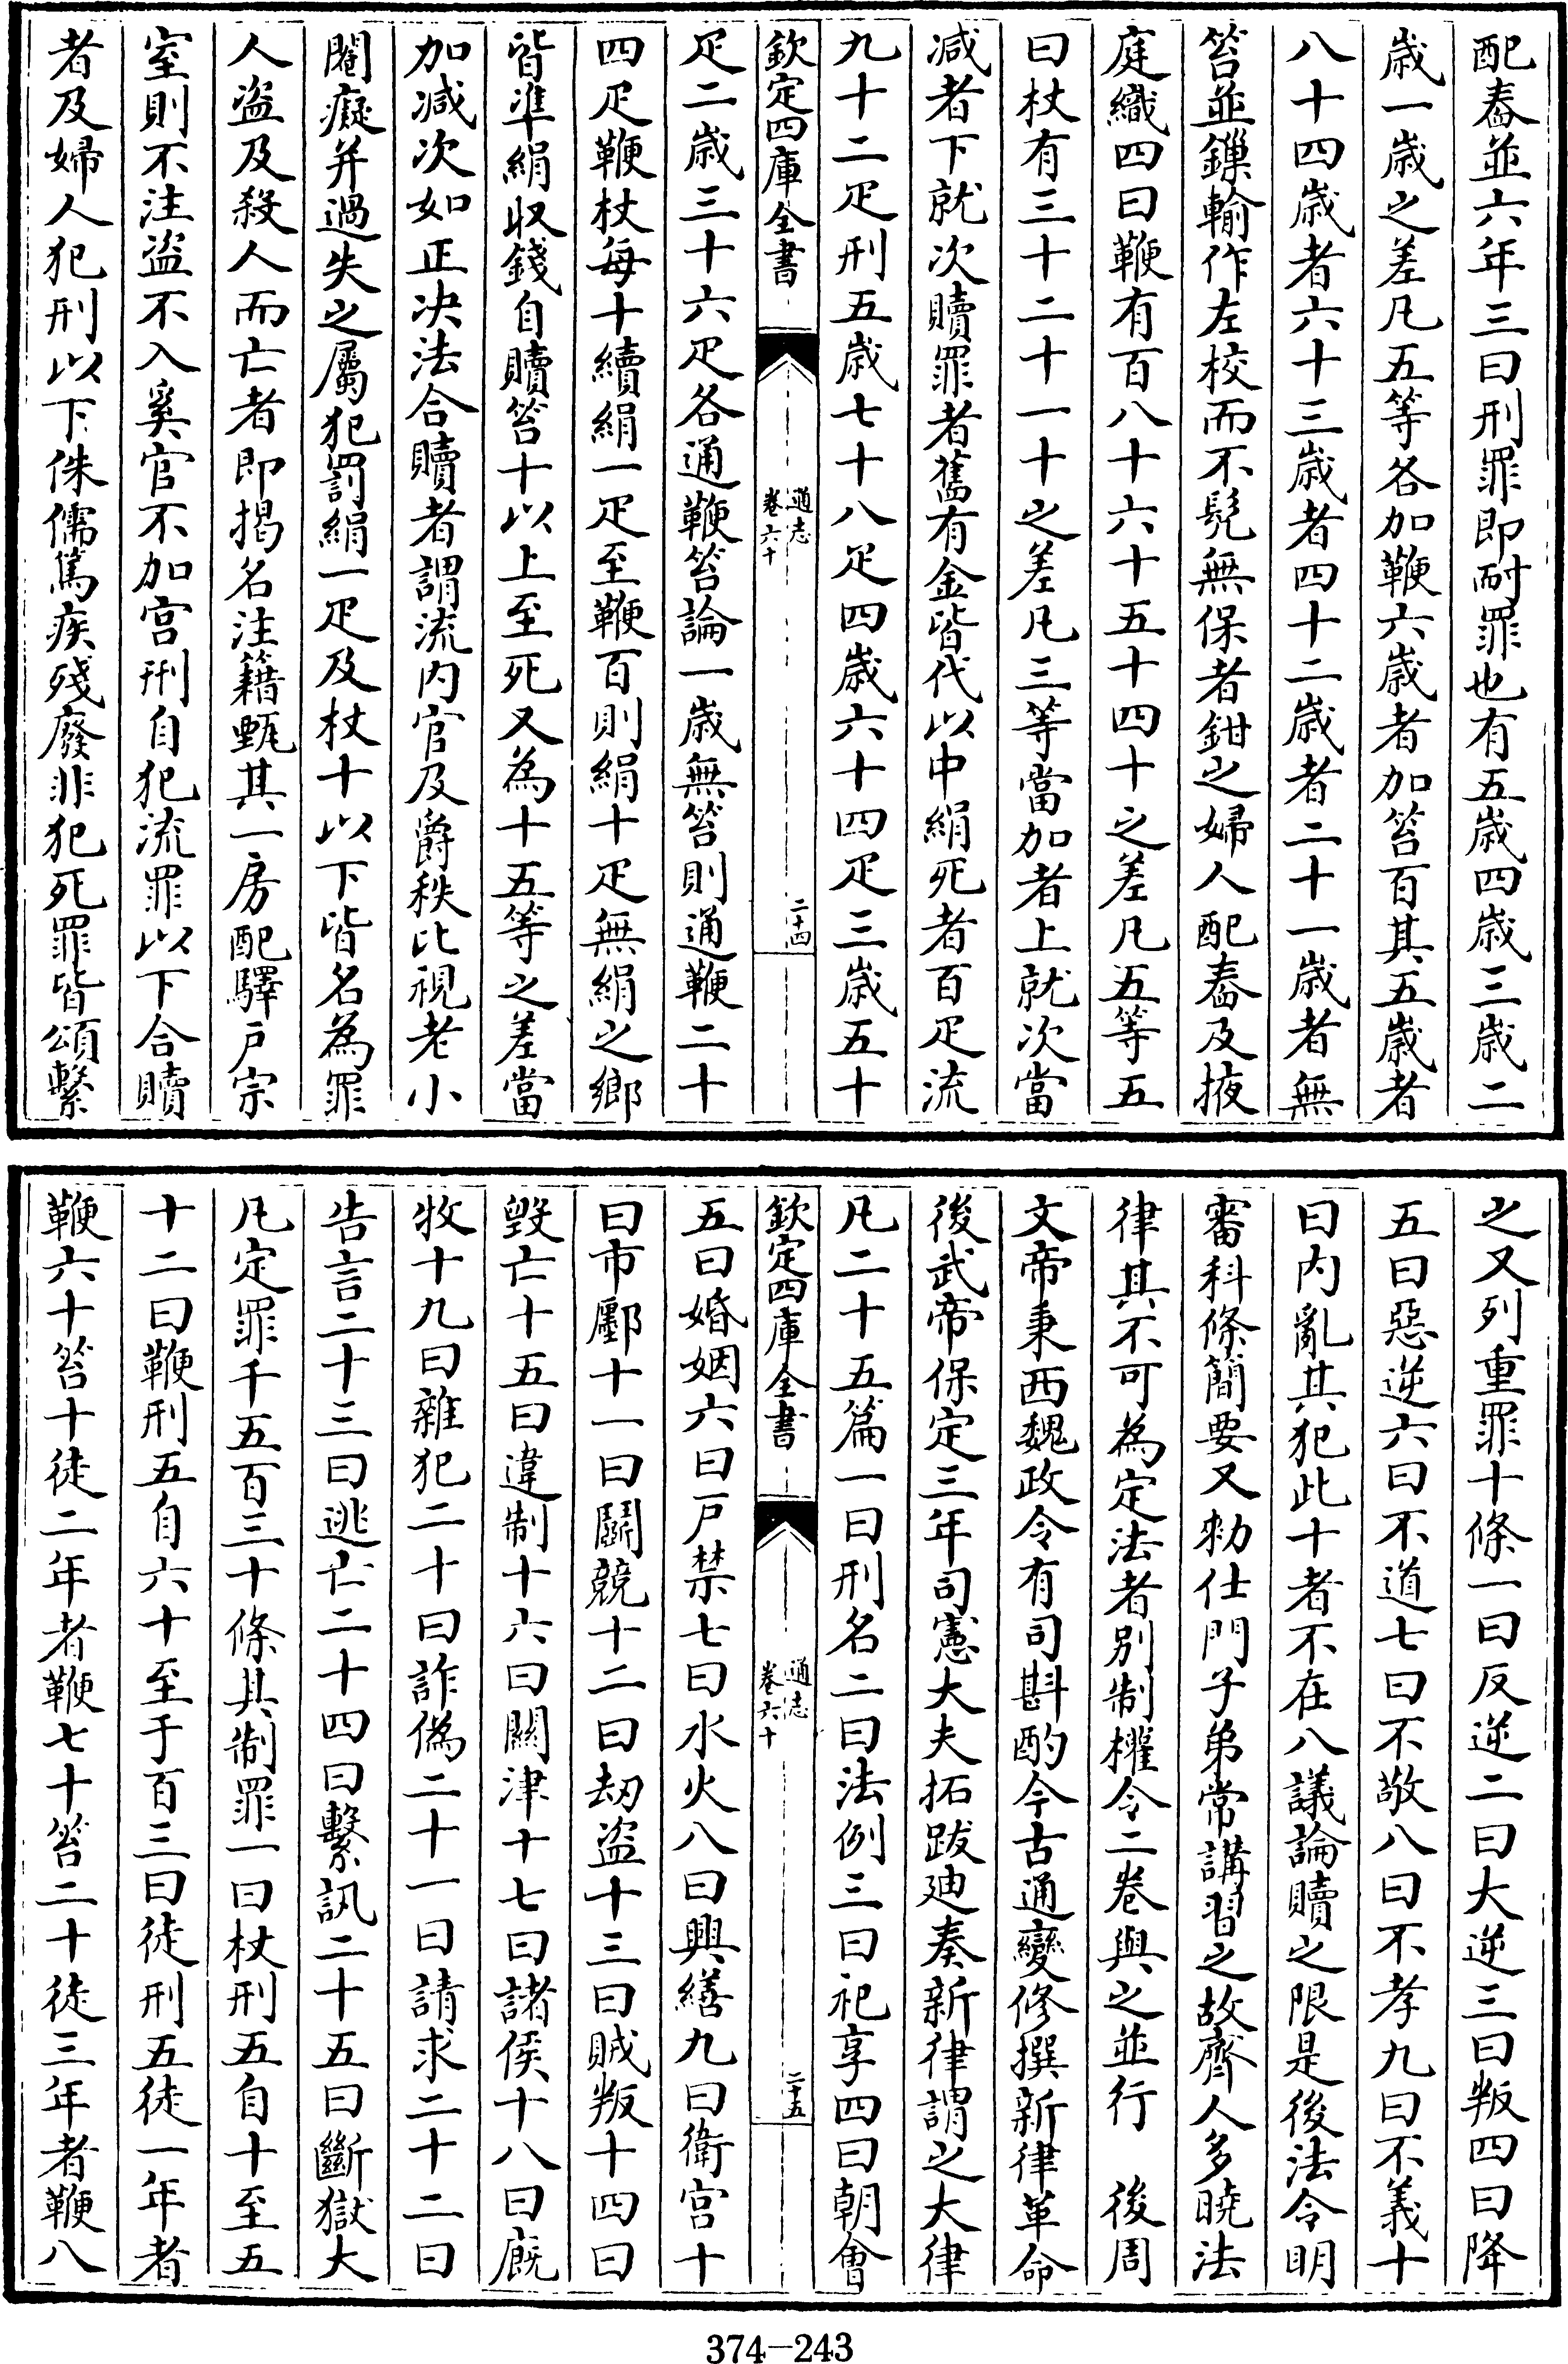 配舂並六年三曰刑罪即耐罪也有五歲四歲三歲二
歲一歲之差凡五等各加鞭六歲者加笞百其五歲者
八十四歲者六十三歲者四十二歲者二十一歲者無
笞並鏁輸作左校而不髠無保者鉗之婦人配舂及掖
庭織四曰鞭有百八十六十五十四十之差凡五等五
曰杖有三十二十一十之差凡三等當加者上就次當
減者下就次贖罪者舊有金皆代以中絹死者百疋流
九十二疋刑五歲七十八疋四歲六十四疋三歲五十
欽定四庫全書
通志
卷六十
二十四
疋二歲三十六疋各通鞭笞論一歲無笞則通鞭二十
四疋鞭杖每十續絹一疋至鞭百則絹十疋無絹之鄉
皆準絹収錢自贖笞十以上至死又為十五等之差當
加減次如正决法合贖者謂流内官及爵秩比視老小
閹癡并過失之屬犯罰絹一疋及杖十以下皆名為罪
人盜及殺人而亡者即揭名注籍甄其一房配驛戸宗
室則不注盜不入奚官不加宫刑自犯流罪以下合贖
者及婦人犯刑以下侏儒篤疾殘廢非犯死罪皆頌繫
之又列重罪十條一曰反逆二曰大逆三曰叛四曰降
五曰惡逆六曰不道七曰不敬八曰不孝九曰不義十
曰内亂其犯此十者不在八議論贖之限是後法令明
審科條簡要又勑仕門子弟常講習之故齊人多曉法
律其不可為定法者别制權令二卷與之並行　後周
文帝秉西魏政令有司斟酌今古通變修撰新律革命
後武帝保定三年司憲大夫拓跋廸奏新律謂之大律
凡二十五篇一曰刑名二曰法例三曰祀享四曰朝會
欽定四庫全書
通志
卷六十
二十五
五曰婚姻六曰戸禁七曰水火八曰興繕九曰衛宫十
曰市鄽十一曰鬭競十二曰刼盜十三曰賊叛十四曰
毁亡十五曰違制十六曰關津十七曰諸侯十八曰廐
牧十九曰雜犯二十曰詐偽二十一曰請求二十二曰
告言二十三曰逃亡二十四曰繫訊二十五曰斷獄大
凡定罪千五百三十條其制罪一曰杖刑五自十至五
十二曰鞭刑五自六十至于百三曰徒刑五徒一年者
鞭六十笞十徒二年者鞭七十笞二十徒三年者鞭八
374-243